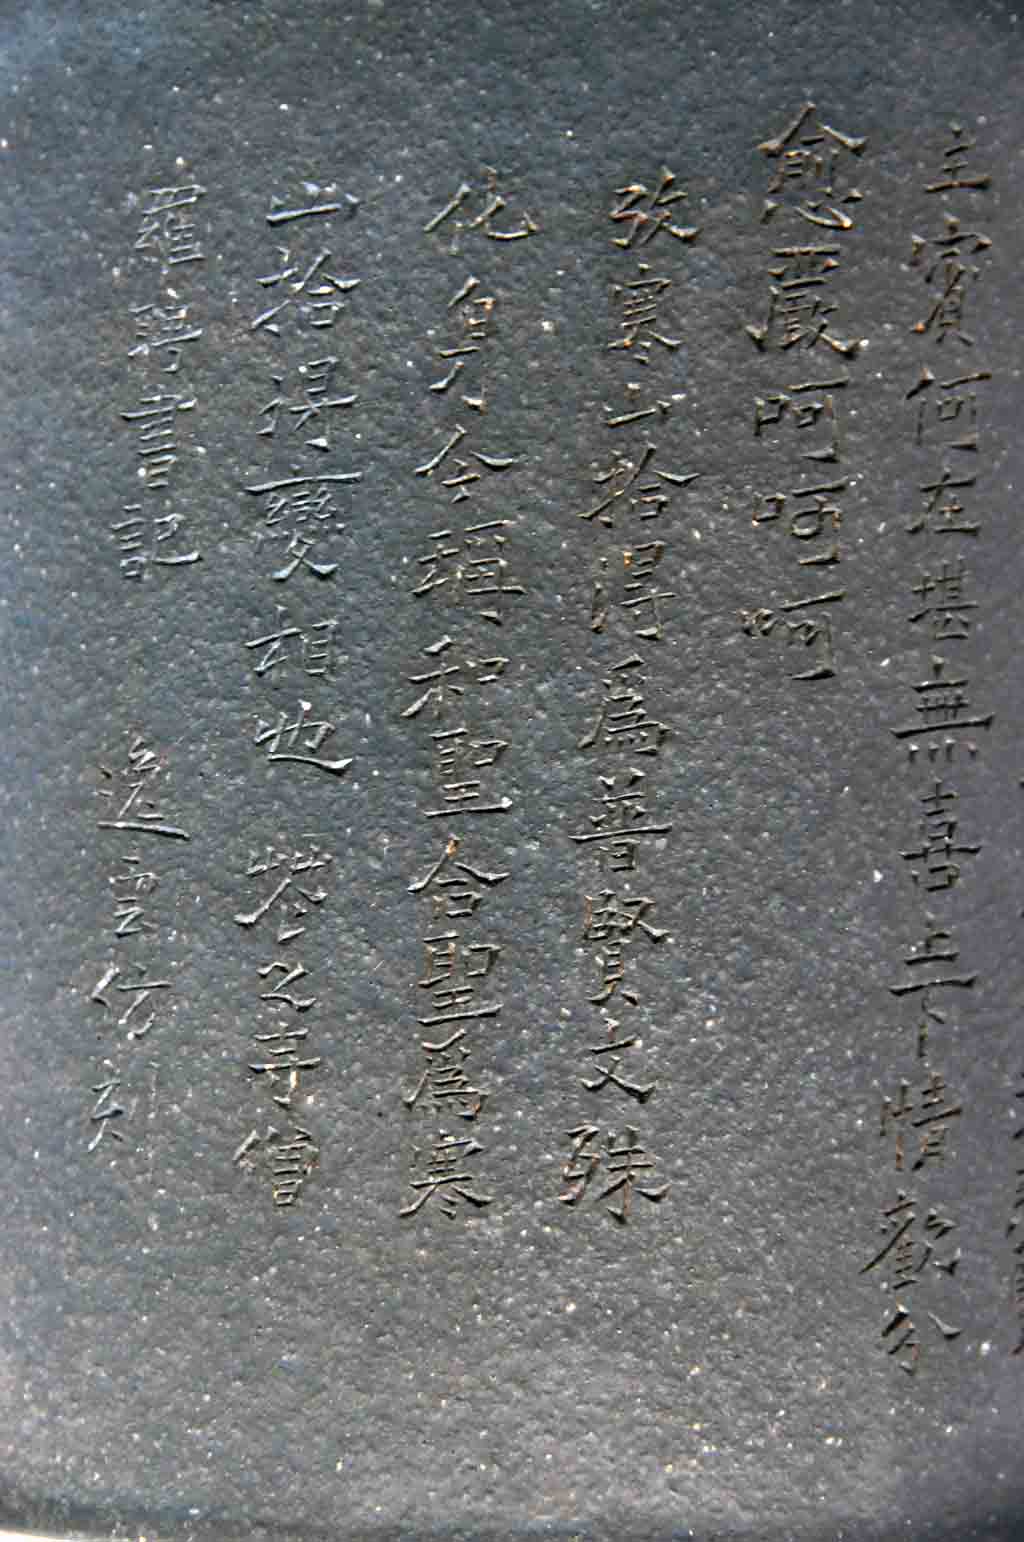 主賓何在堪無喜上下情歡分
愈嚴呵呵呵
攷寒山拾得爲普賢文殊
化身今稱和聖合聖爲寒
山拾得變相也 花之寺僧
羅聘書記 逸雲仿刻